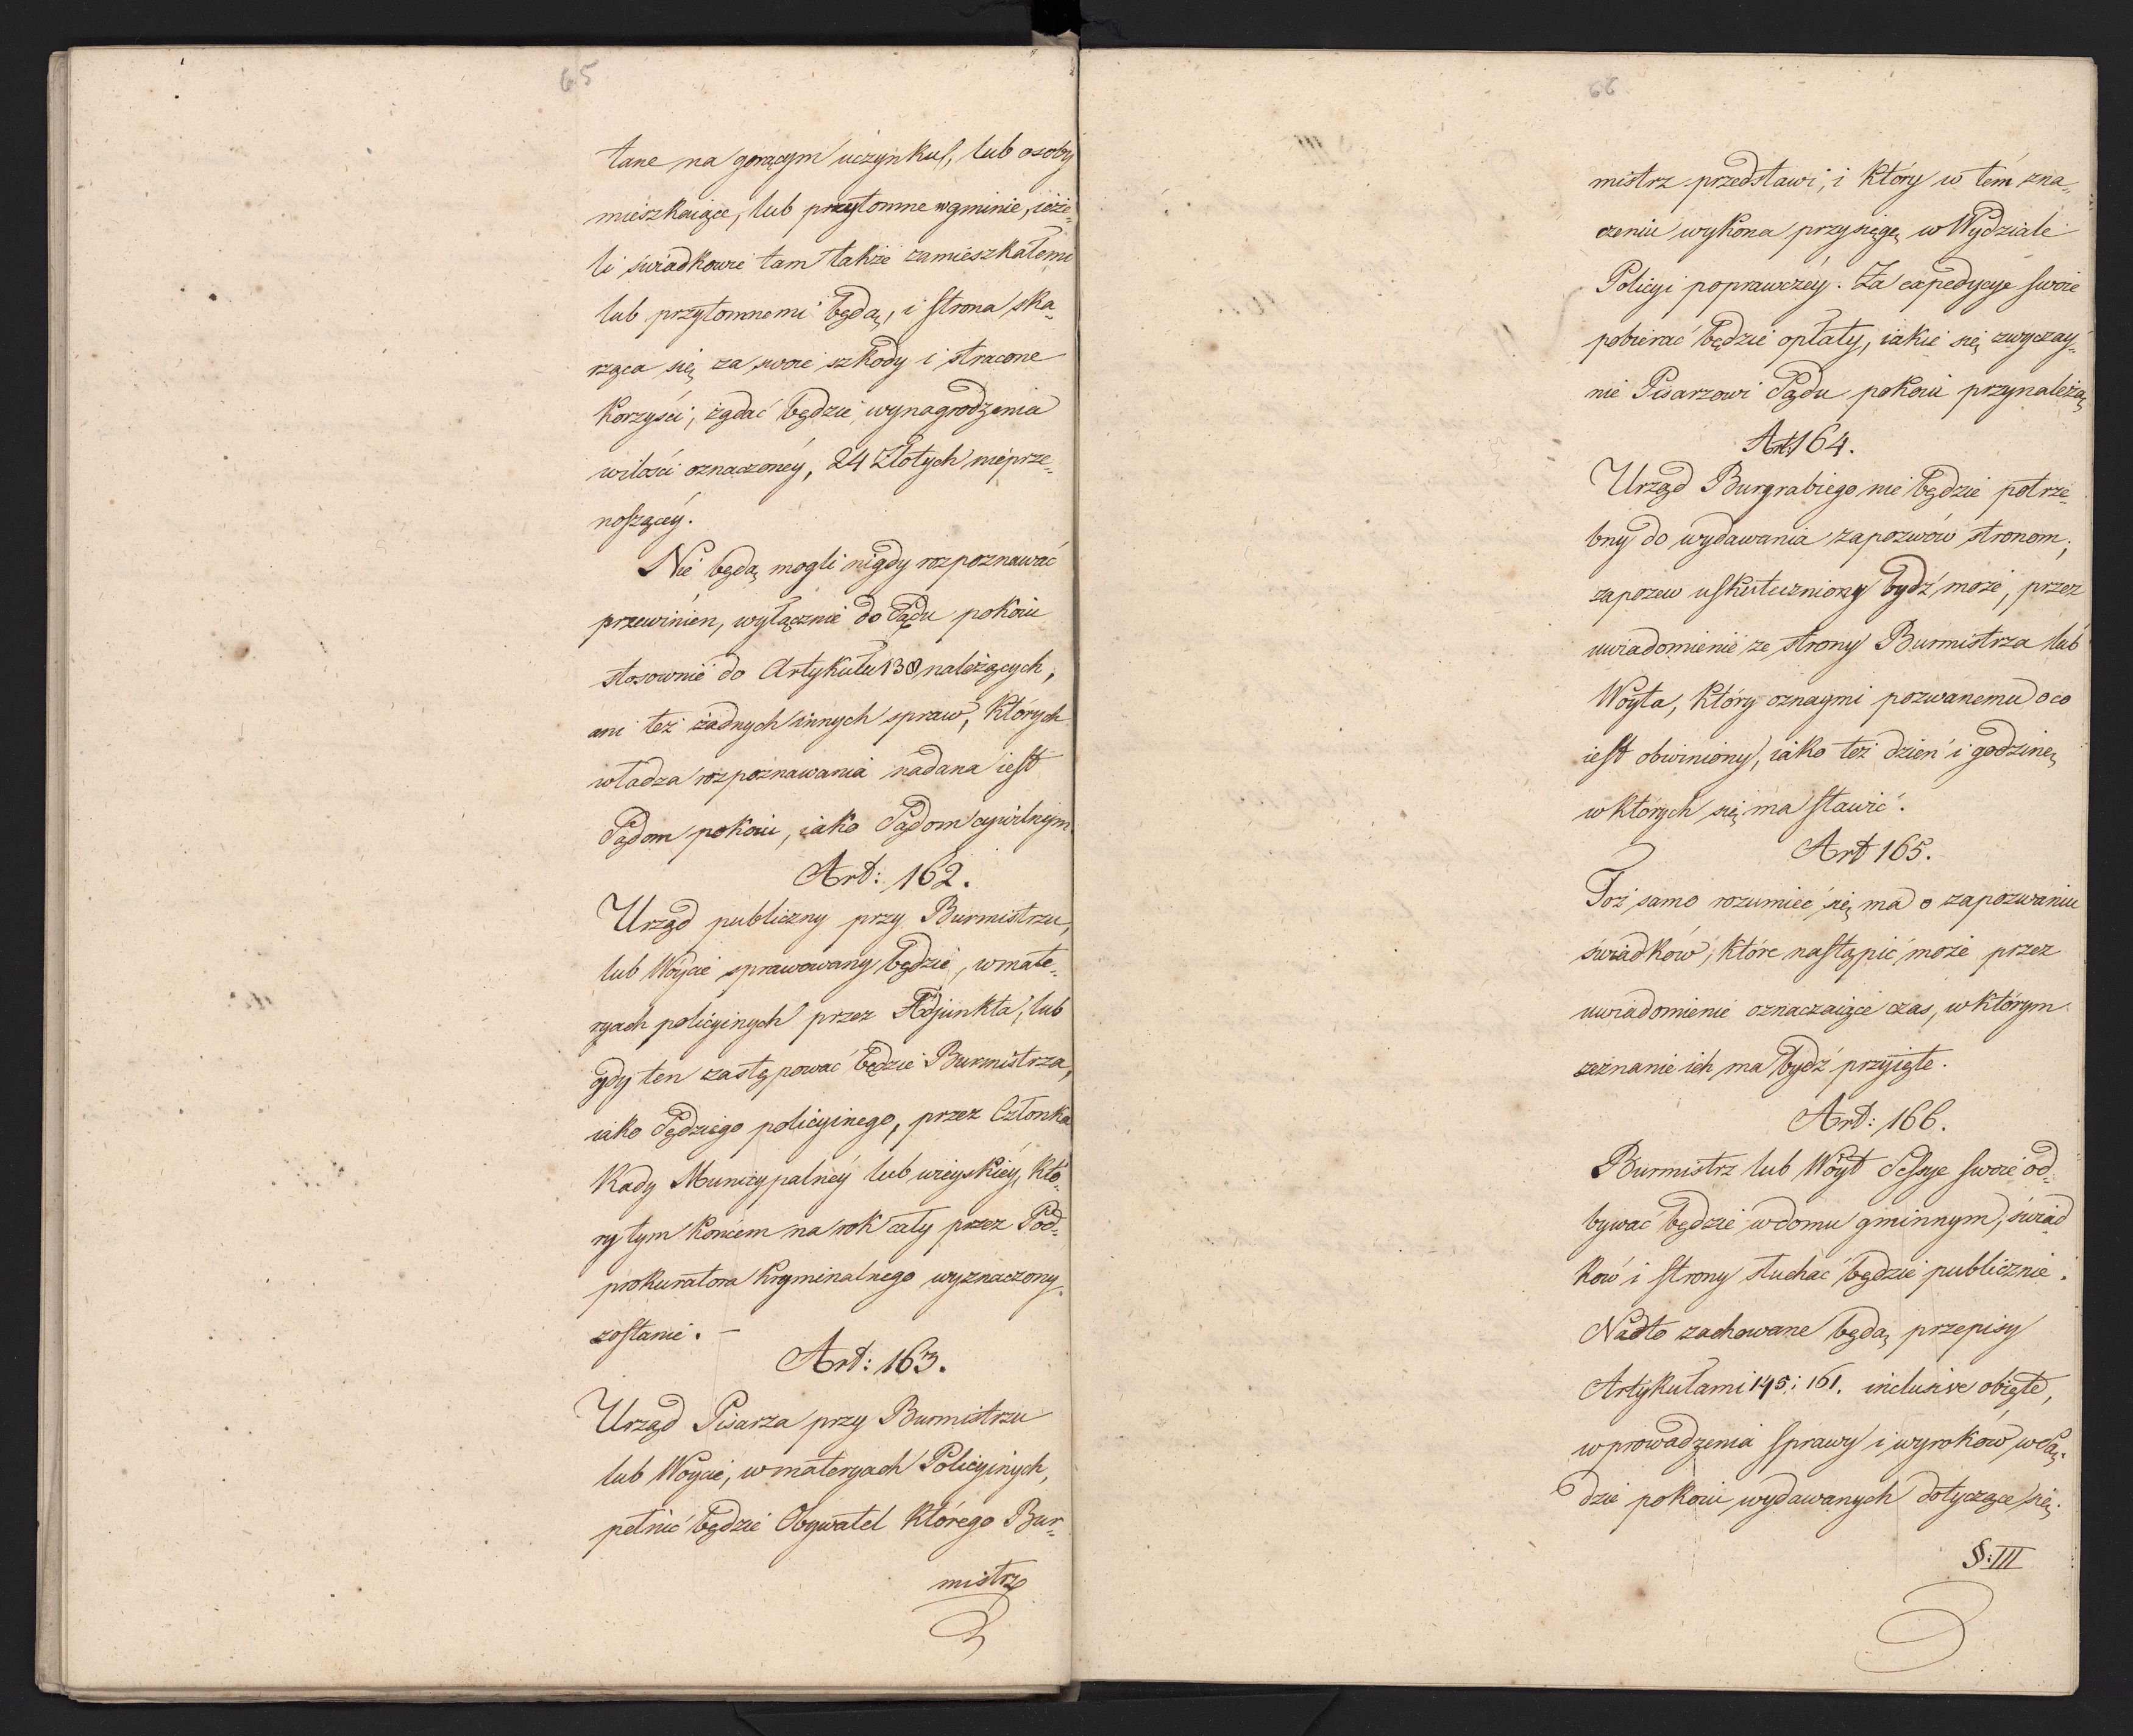 65
tane na gorącym uczynku, lub osoby
mieszkaiące, lub przytomne w gminie, ieże„
li świadkowie tam także zamieszkałemi
lub przytomnemi będą, i strona ska„
rżąca się za swoie szkody i stracone
korzyści, żądać będzie wynagrodzenia
wilości oznaczonéy, 24 Złotych nieprze„
noszącéy.
Nie będą mogli nigdy rozpoznawać
przewinień, wyłącznie do Sądu pokoiu
stosownie do Artykułu 139 należących,
ani też żadnych innych spraw, których
władza rozpoznawania nadana iest
Sądom pokoiu, iako Sądom cywilnym.
Art: 162.
Urząd publiczny przy Burmistrzu,
lub Wóycie sprawowany będzie, wmate„
ryach policyinych przez Adjunkta, lub
gdy ten zastępować będzie Burmistrza,
iako Sędziego policyinego, przez Członka
Rady Municypalnéy lub wieyskiéy, któ„
ry tym końcem na rok cały przez Pod„
prokuratora kryminalnego wyznaczony
zostanie. –
Art: 163.
Urząd Pisarza przy Burmistrzu
lub Wóycie, wmateryach Policyinych,
pełnić będzie Obywatel którego Bur„
mistrz
66
mistrz przedstawi, i który w tém zna„
czeniu wykona przysięgę w Wydziale
Policyi poprawczéy. Za expedycye swoie
pobierać będzie opłaty, iakie się zwyczay„
nie Pisarzowi Sądu pokoiu przynależą.
Art: 164.
Urząd Burgrabiego nie będzie potrze„
bny do wydawania zapozwów stronom;
zapozew uskuteczniony bydź może, przez
uwiadomienie ze strony Burmistrza lub
Wóyta, który oznaymi pozwanemu oco
iest obwiniony, iako też dzień i godzinę
wktórych się ma stawić.
Art 165.
Toż samo rozumieć się ma o zapozwaniu
świadków, które nastąpić może przez
uwiadomienie oznaczaiące czas, wktórym
zeznanie ich ma bydź przyięte.
Art: 166.
Burmistrz lub Wóyt Sessye swoie od„
bywać będzie wdomu gminnym, świad„
ków i strony słuchać będzie publicznie.
Nadto zachowane będą przepisy
Artykułami 145 i 161. inclusive obięte,
wprowadzenia sprawy i wyroków, w Są„
dzie pokoiu wydawanych dotyczące się.
§: III